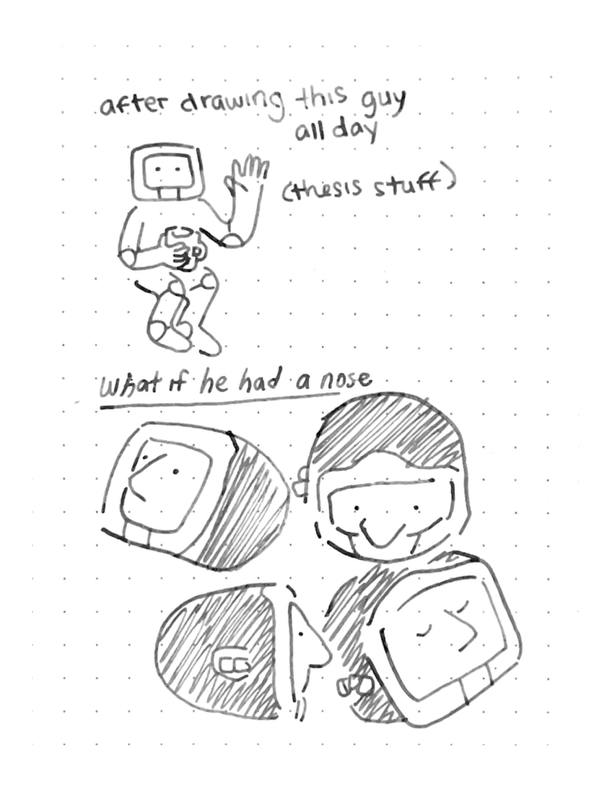 after drawing this guy
all day
(thesis stuff)
What if he had a nose